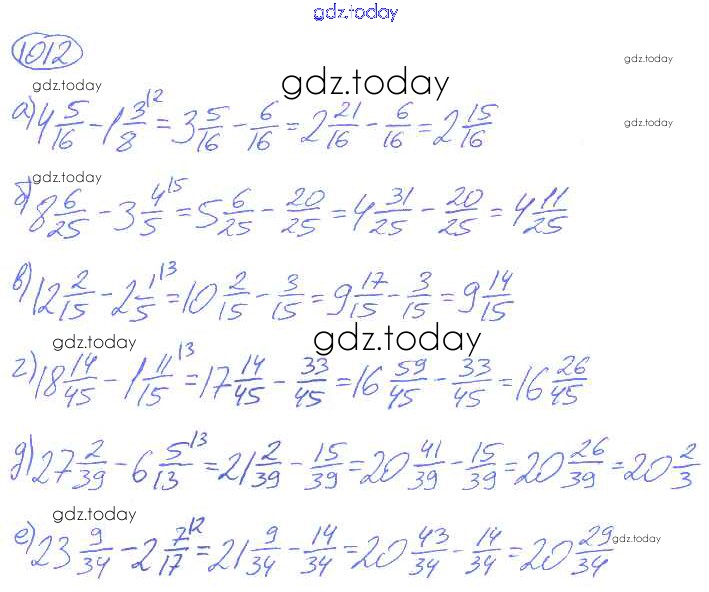 gdz.today
1012
gdz.today
gdz.today
gdz.today
а) 4 5/16 - 1 3/8 ^12 = 3 5/16 - 6/16 = 2 21/16 - 6/16 = 2 15/16
gdz.today
gdz.today
б) 8 6/25 - 3 4/5 ^15 = 5 6/25 - 20/25 = 4 31/25 - 20/25 = 4 11/25
в) 12 2/15 - 2 1/5 ^13 = 10 2/15 - 3/15 = 9 17/15 - 3/15 = 9 14/15
gdz.today
gdz.today
г) 18 14/45 - 1 11/15 ^13 = 17 14/45 - 33/45 = 16 59/45 - 33/45 = 16 26/45
д) 27 2/39 - 6 5/13 ^13 = 21 2/39 - 15/39 = 20 41/39 - 15/39 = 20 26/39 = 20 2/3
gdz.today
е) 23 9/34 - 2 7/17 ^12 = 21 9/34 - 14/34 = 20 43/34 - 14/34 = 20 29/34
gdz.today